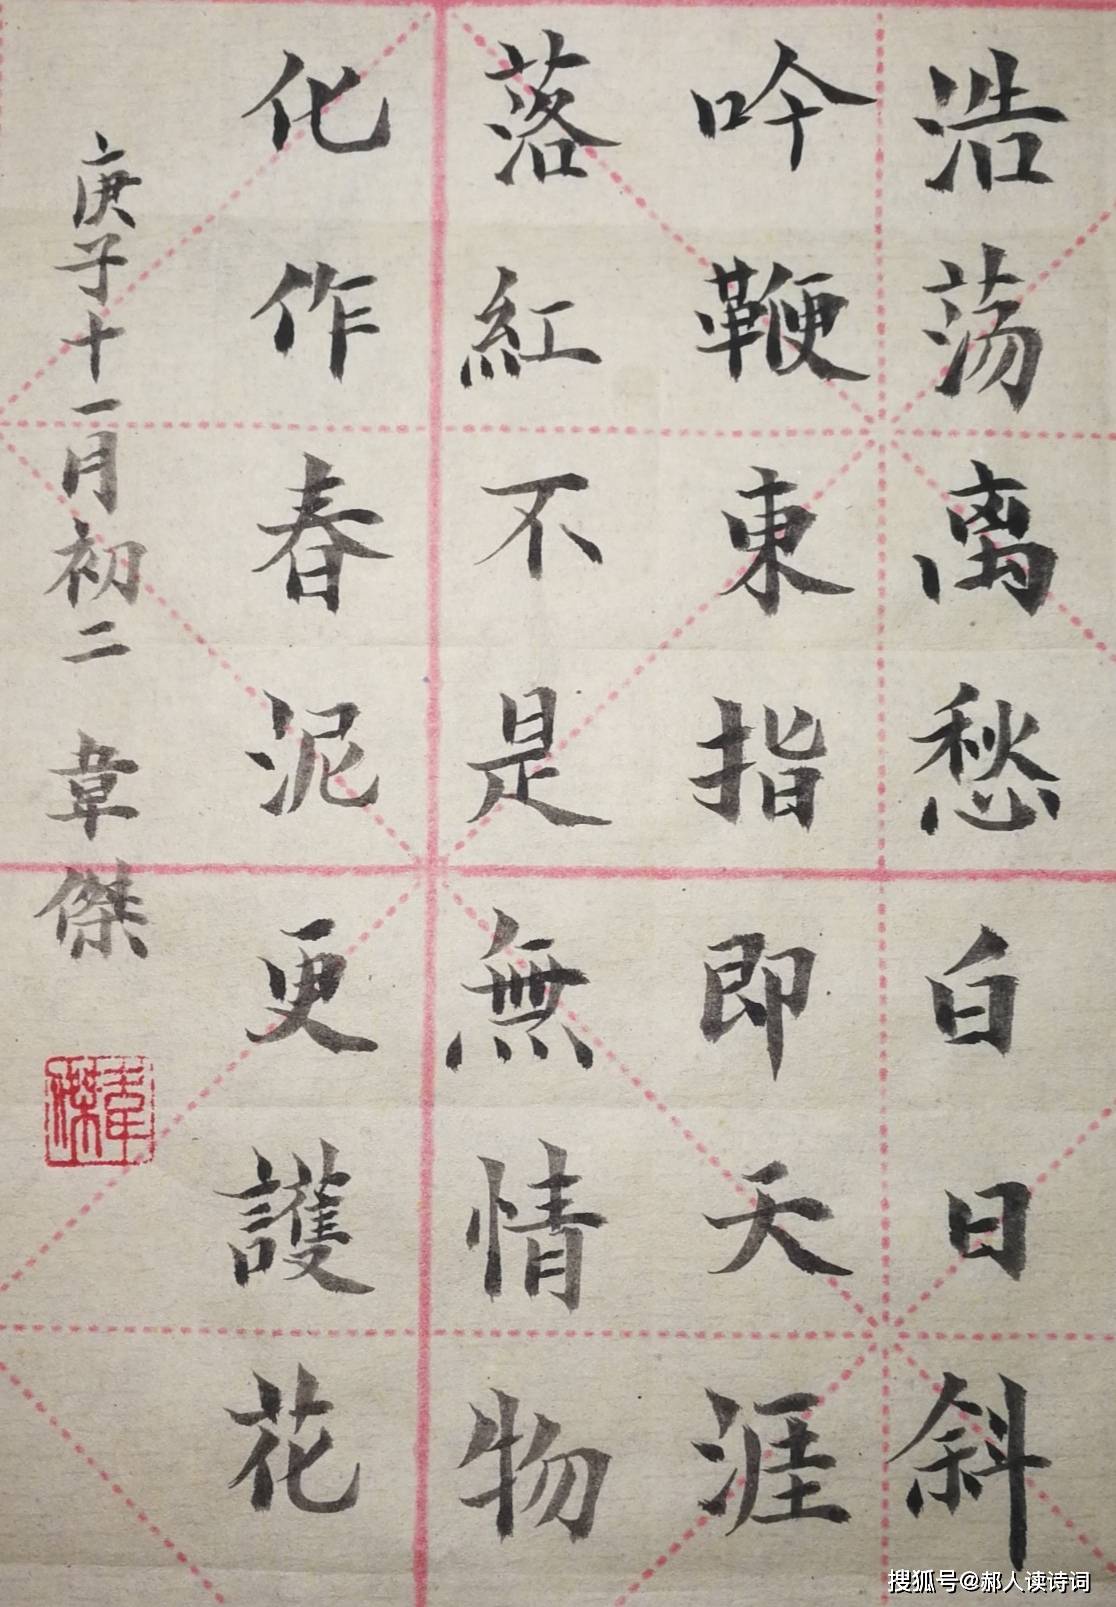 浩荡离愁白日斜
吟鞭東指即天涯
落紅不是無情物
化作春泥更護花
庚子十一月初二 章傑
章傑
搜狐号@郝人读诗词